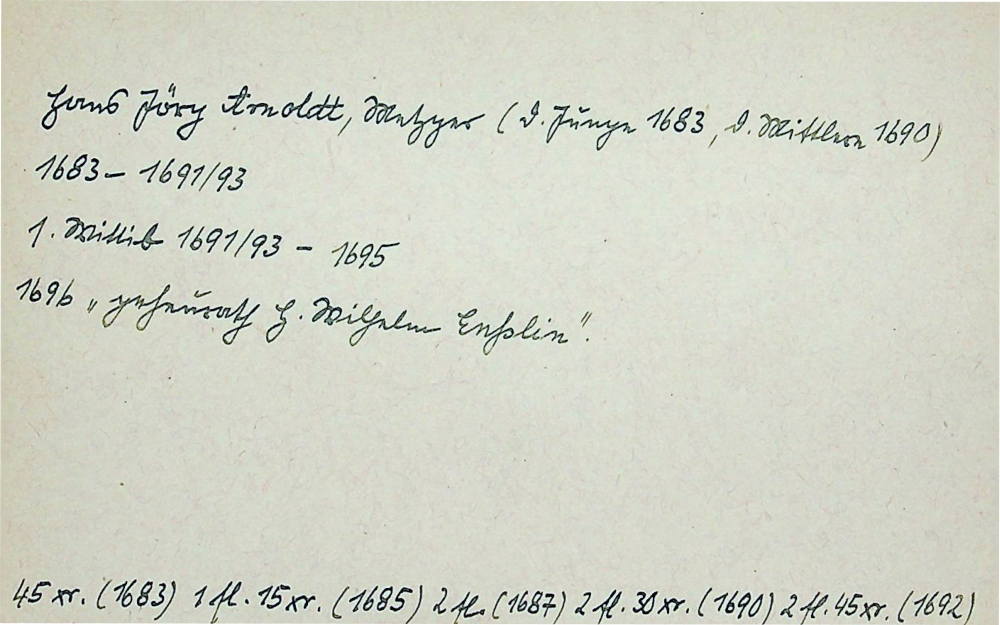 Hans Jörg Arnoldt, Metzger (d. Junge 1683, d. Mittlere 1690)
1683 – 1691/93
1. Wittib 1691/93 – 1695
1696 „geheurath H. Wilhelm Enßlin".
45 xr. (1683) 1 fl. 15 xr. (1685) 2 fl. (1687) 2 fl. 30 xr. (1690) 2 fl. 45 xr. (1692)